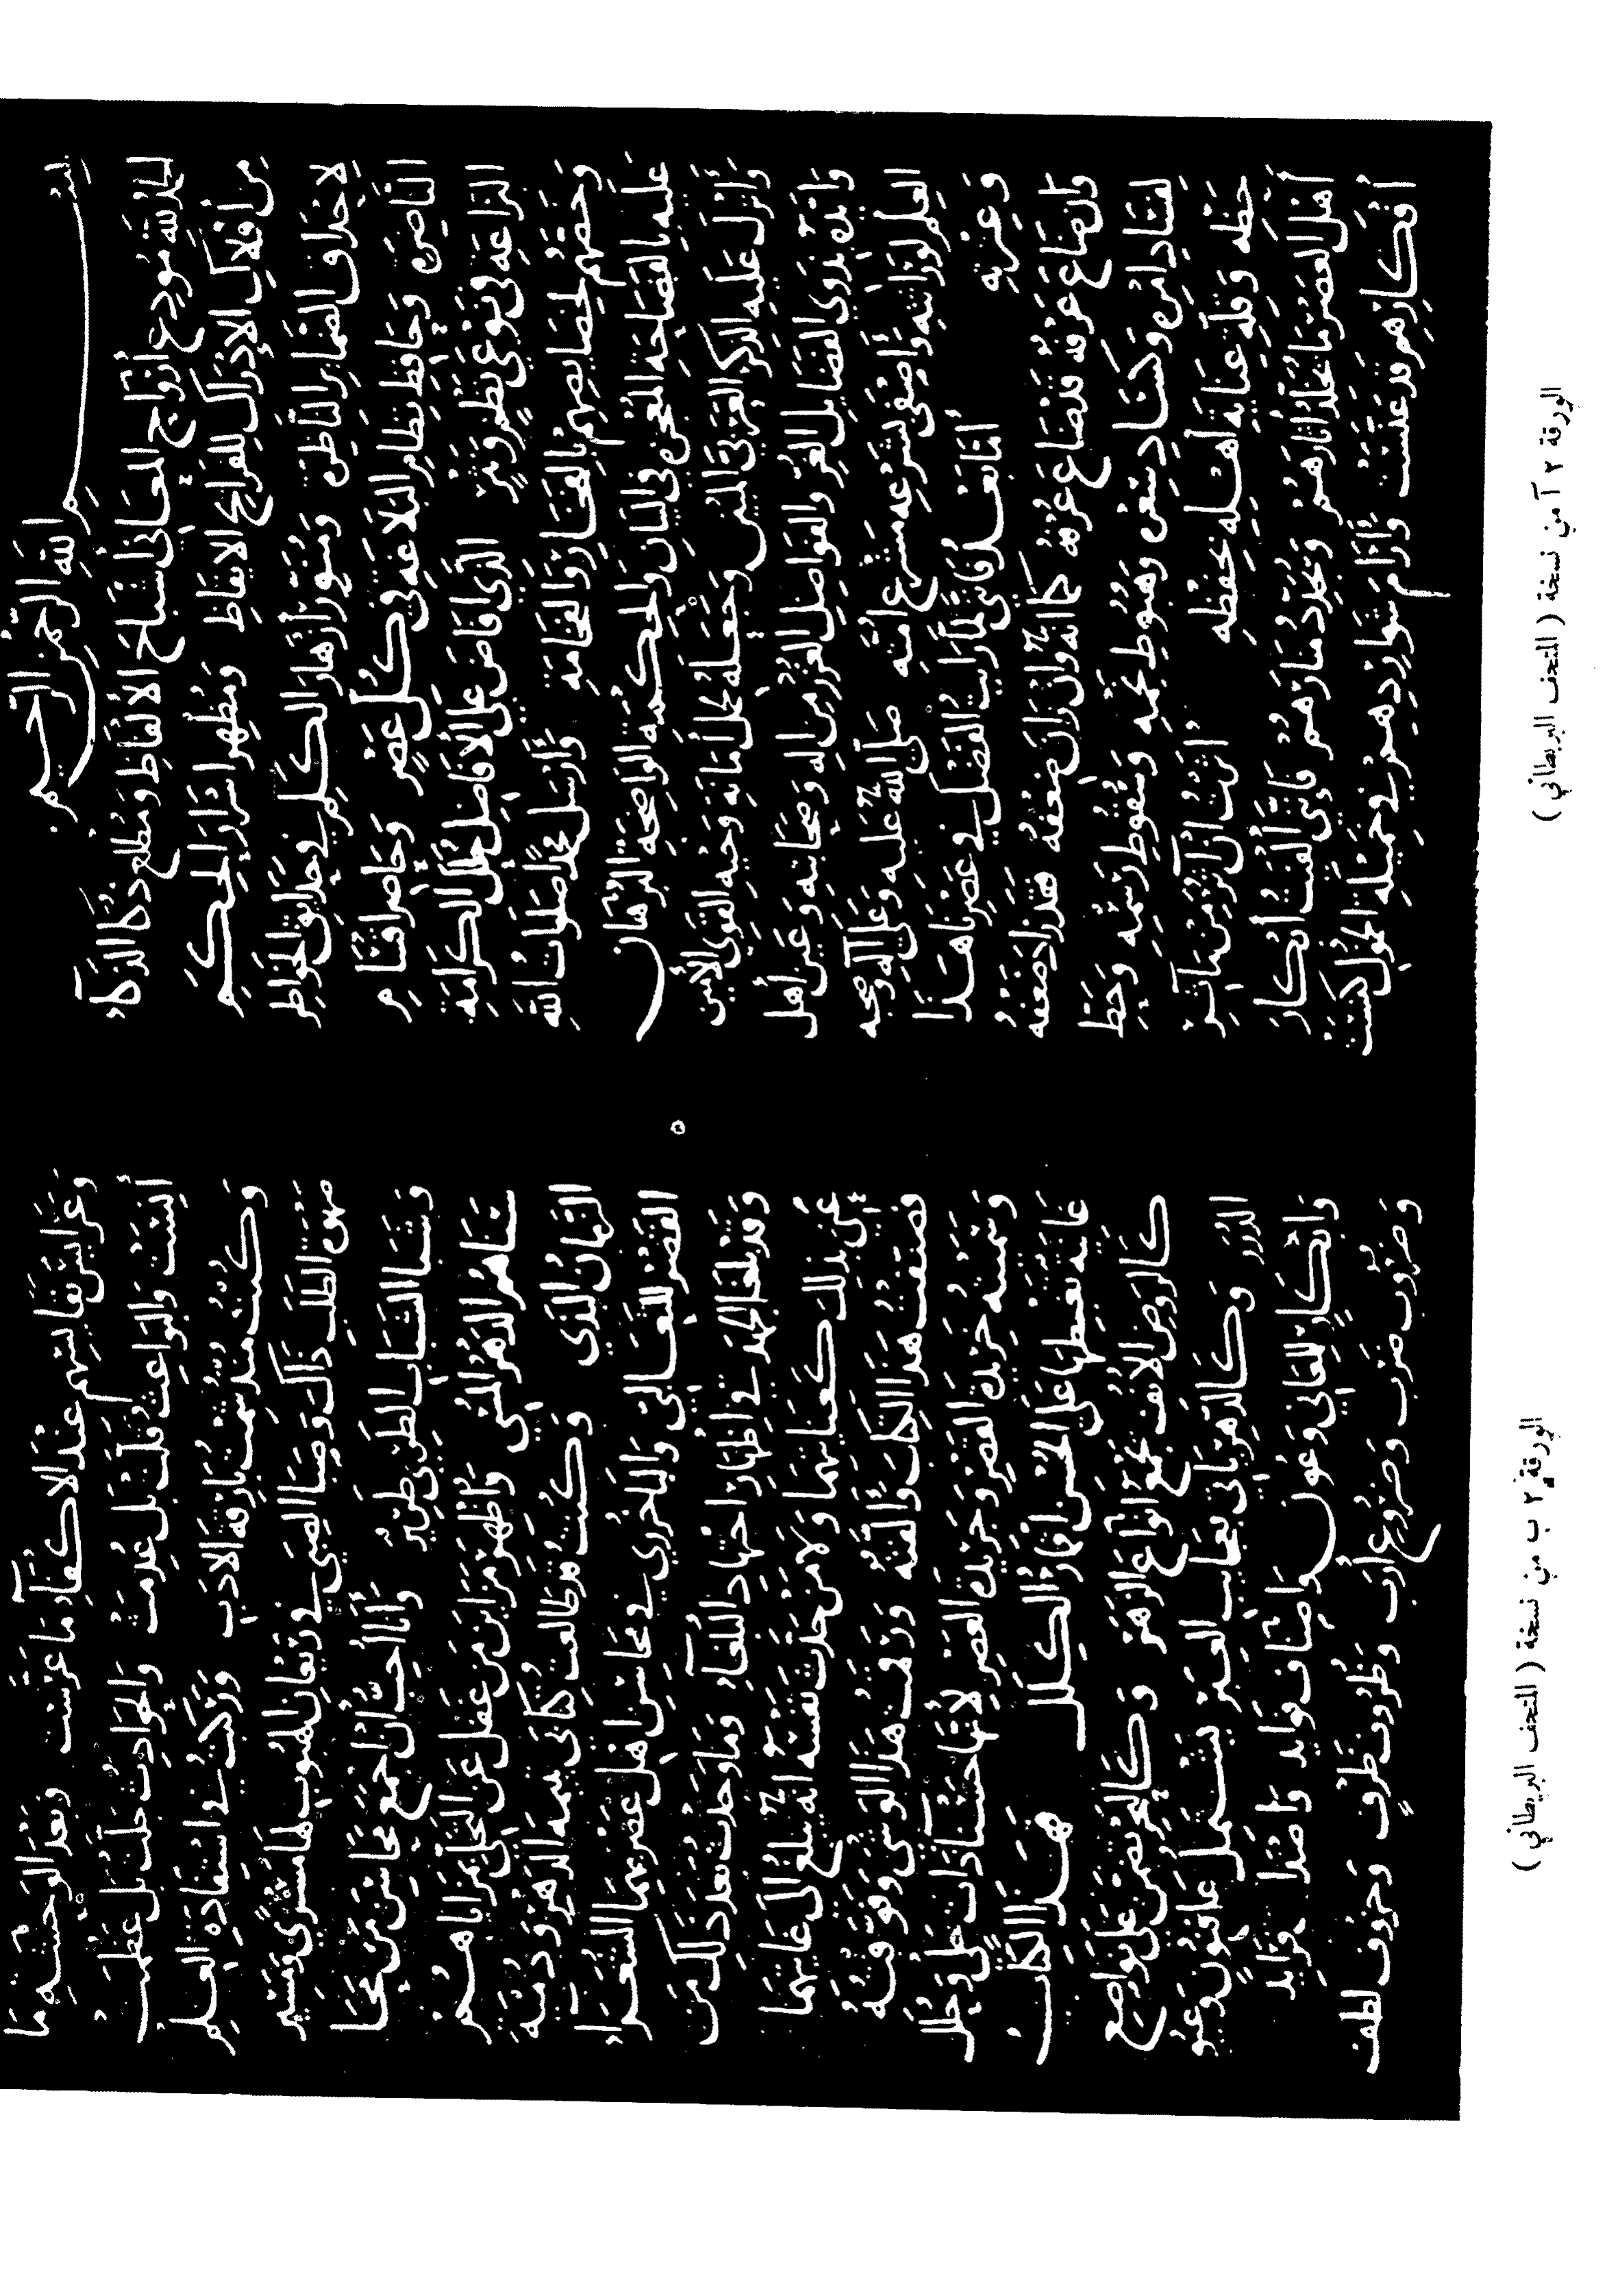 بسم الله الرحمن الرحيم
الحمد لله مودع أرواح المعاني أشباح الألفاظ ومطلع ذكاء الذكاء
من أفلاك الإدراك للقرائح الايقاظ ومظهر أسرار الحكم
لأحداق الضمائر الناظرة ومنور أزهار الكلم في حدايق الخواطر
الناضرة وحافظ نظام البلاغة في كل عصر وحاصر أقسام
البراعة في نوعي نظم ونثر الذي أفاض على الأفاضل حلل الكرامة
وخصهم بخصايصهم بالفخار والفخامة وأرسل محمدا صلوات الله
عليه بالفصاحة المعجزة البيان والحكمة الواضحة البرهان
وأنزل عليه الذكر العربي المبين وجعله محل أمانة وحيه القوي الأمين
وأيده بذوي الفضايل الغر والفواضل الغزر من آله وصحابته وعين أهل
العلم لوراثته وأصفى بشرعه مشرع أمته صلى الله عليه وعلى آله وصحبه
وعترته أما بعد فإني لما رأيت الفضل في عصرنا هذا
وإن ضاع عرفه قد ضاع عرفه كما أنه وإن زان ضعفه قد زاد ضعفه
لفساد أمره وكساد سعره وهبوط نجمه وسقوط رسمه وحط
حظه وقلة عناية أهله بحفظه آثرت أن أوثر من مآثر
أهل العصر ما يخلد آثارهم ويجدد منارهم فإني ألفيت أبكار
أفكارهم قد عنست وآرام شواردهم في خميلة الخمول كنست
الورقة ٢ آ من نسخة ( المتحف البريطاني )
وعرايس نفايسهم عند الأكفاء ما عرست وبعد الوحشة ما
أنست والبواعث قلت بل عدمت والحوادث جلت بل عظمت
وكنت منذ شمت بارقة الأدب وركبت في استفادة العلم
صهوة الطلب ذاك وصبا الصبى في ريعان الهبوب لها مسرى ومسير
وشبا الشباب الطري طرير وأنا أحب أن أجمع محاسن من محا
سناهم الدهر المسي وأظهر مزاين من غفل عن التحلي بمزاياهم
الزمان الذي وكنت قد طالعت كتابي يتيمة الدهر ودمية
القصر للثعالبي والباخرزي في محاسن أهل عصرهما الشعراء
وقد بلغا الجهد في إظهار اجتهاد البلغاء وما وجدت بعد ذلك من
عني بذلك كعنايتهما ولا من حدث نفسه أنه يبلغ إلى غايتهما
فصنفت هذا الكتاب وألفته ورقمت هذا الوشي وفوفته
وسمته خريدة القصر وجريدة العصر لأنها حسناء ذات حلي وحلل
غانية على الحسن أقمار الكلل هذا الكتاب
كالروض الأنف يجمع أنواع الزهر وكالبحر تضمن على نواصع
الدرر وكالدهر يأتي بعجايب العبر يشتمل على فنون وعيون
وأبكار للمعاني وعون وأصناف فوايد وأصداف فرايد
وضروب ضرب وضروع أرب وظروف ظرف وحروف لطف
الورقة ٢ ب من نسخة ( المتحف البريطاني )